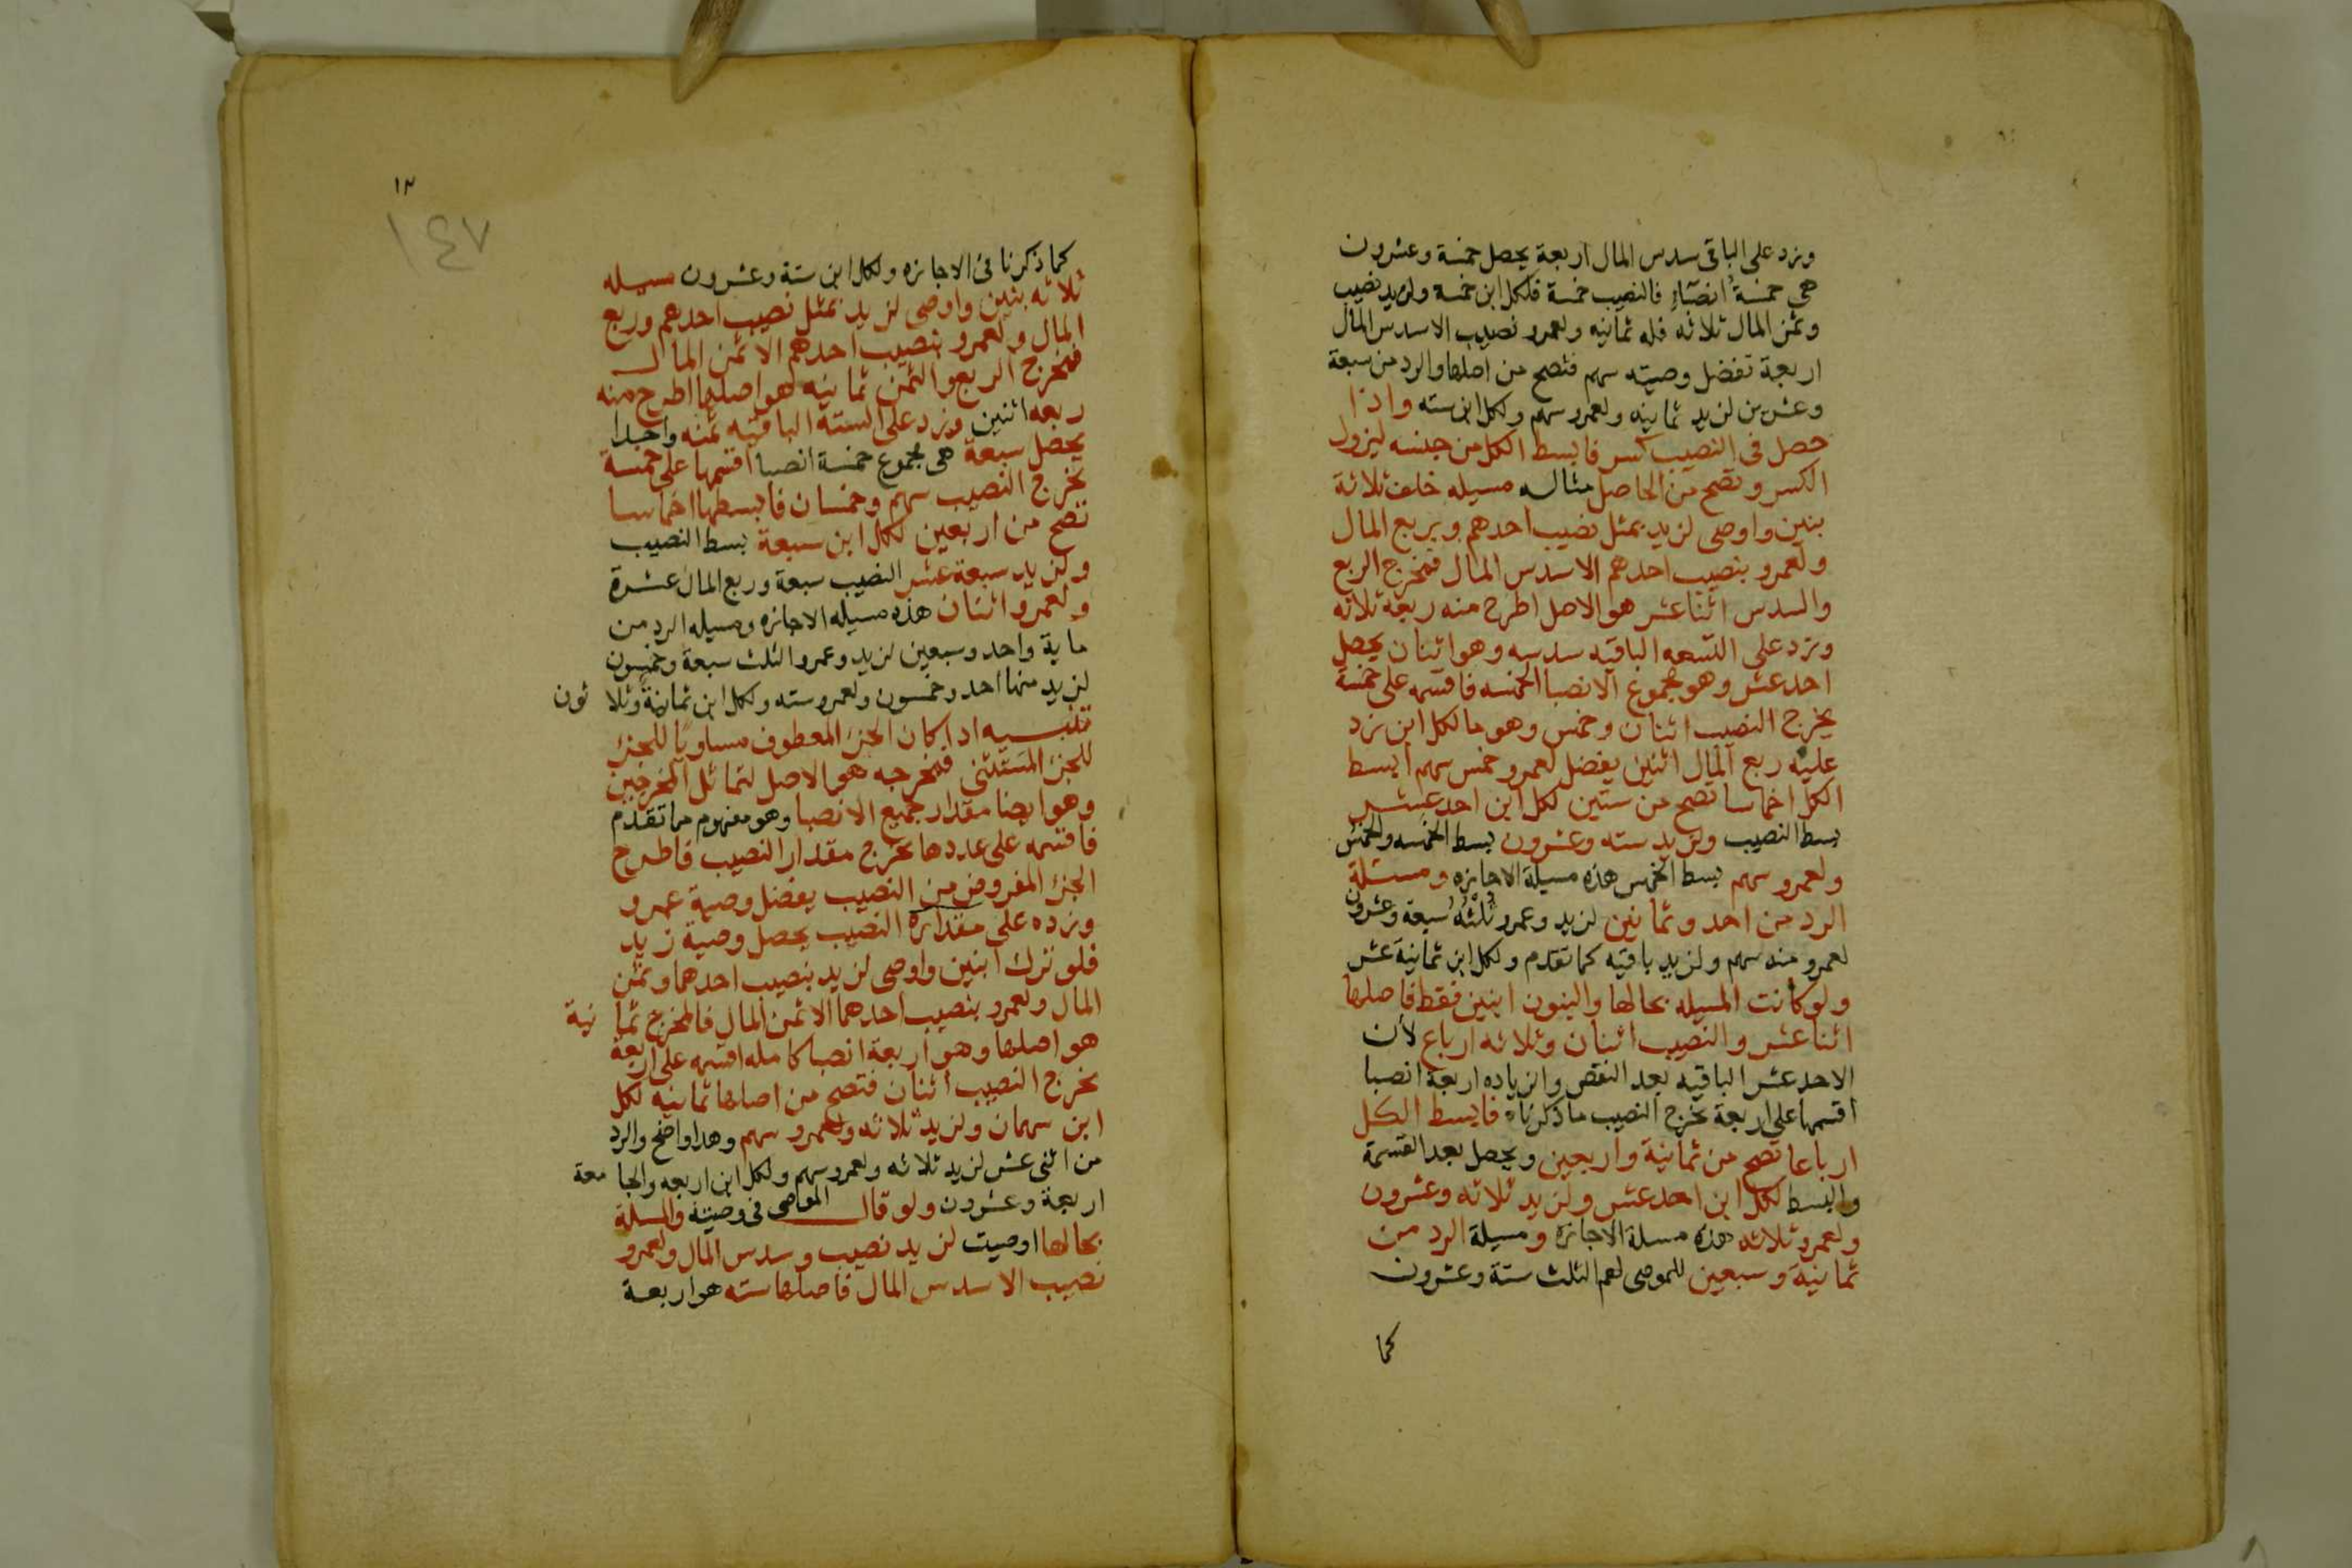 وزد على الباقى سدس المال اربعة يحصل خمسة وعشرون
هى خمسة انصباء فالنصيب خمسة فلكل ابن خمسة ولزيد نصيب
وثمن المال ثلاثه فله ثمانيه ولعمرو نصيب الا سدس المال
اربعة تفضل وصيته سهم فتصح من اصلها والرد من سبعة
وعشرين لزيد ثمانيه ولعمرو سهم ولكل ابن سته واذا
حصل فى النصيب كسر فابسط الكل من جنسه ليزول
الكسر وتصح من الحاصل مثاله مسيله خلف ثلاثة
بنين واوصى لزيد بمثل نصيب احدهم وبربع المال
ولعمرو بنصيب احدهم الا سدس المال فمخرج الربع
والسدس اثنا عشر هو الاصل اطرح منه ربعه ثلاثه
وزد على التسعه الباقيه سدسه وهو اثنان يحصل
احد عشر وهو مجموع الانصبا الخمسه فاقسمه على خمسة
يخرج النصيب اثنان وخمس وهو ما لكل ابن زد
عليه ربع المال اثنين يفضل لعمرو خمس سهم ابسط
الكل اخماسا تصح من ستين لكل ابن احد عشر
بسط النصيب ولزيد سته وعشرون بسط الخمسه والخمس
ولعمرو سهم بسط الخمس هذه مسيلة الاجازه ومسئلة
الرد من احد وثمانين لزيد وعمرو ثلثه سبعة وعشرون
لعمرو منه سهم ولزيد باقيه كما تقدم ولكل ابن ثمانية عشر
ولو كانت المسيله بحالها والبنون ابنين فقط فاصلها
اثنا عشر والنصيب اثنان وثلاثه ارباع لأن
الاحد عشر الباقيه بعد النقص والزياده اربعة انصبا
اقسمها على اربعة يخرج النصيب ما ذكرناه فابسط الكل
ارباعا تصح من ثمانية واربعين ويحصل بعد القسمة
والبسط لكل ابن احد عشر ولزيد ثلاثه وعشرون
ولعمرو ثلاثه هذه مسلة الاجازه ومسيلة الرد من
ثمانية وسبعين للموصى لهم الثلث ستة وعشرون
كما
١٣
١٤٧
كما ذكرنا فى الاجازه ولكل ابن ستة وعشرون مسيله
ثلاثه بنين واوصى لزيد بمثل نصيب احدهم وربع
المال ولعمرو بنصيب احدهم الا ثمن المال
فمخرج الربع والثمن ثمانيه هو اصلها اطرح منه
ربعه اثنين وزد على السته الباقيه ثمنه واحدا
يحصل سبعة هى مجموع خمسة انصبا اقسمها على خمسة
يخرج النصيب سهم وخمسان فابسطها اخماسا
تصح من اربعين لكل ابن سبعة بسط النصيب
ولزيد سبعة عشر النصيب سبعة وربع المال عشرة
ولعمرو اثنان هذه مسيله الاجازه ومسيله الرد من
ماية واحد وسبعين لزيد وعمرو الثلث سبعة وخمسون
لزيد منها احد وخمسون ولعمرو سته ولكل ابن ثمانية وثلا ثون
تنبيه اذا كان الجزء المعطوف مساويا للجزء
للجزء المستثنى فمخرجه هو الاصل لتماثل المخرجين
وهو ايضا مقدار جميع الانصبا وهو مفهوم مما تقدم
فاقسمه على عددها يخرج مقدار النصيب فاطرح
الجزء المفروض من النصيب يفضل وصية عمرو
وزده على مقداره النصيب يحصل وصية زيد
فلو ترك ابنين واوصى لزيد بنصيب احدهما وثمن
المال ولعمرو بنصيب احدهما الا ثمن المال فالمخرج ثما نية
هو اصلها وهو اربعة انصبا كامله اقسمه على اربعة
يخرج النصيب اثنان فتصح من اصلها ثمانيه لكل
ابن سهمان ولزيد ثلاثه ولعمرو سهم وهذا واضح والرد
من اثنى عشر لزيد ثلاثه ولعمرو سهم ولكل ابن اربعه والجا معة
اربعة وعشرون ولو قال الموصى فى وصيته والمسلة
بحالها اوصيت لزيد نصيب وسدس المال ولعمرو
نصيب الا سدس المال فاصلها سته هو اربعة